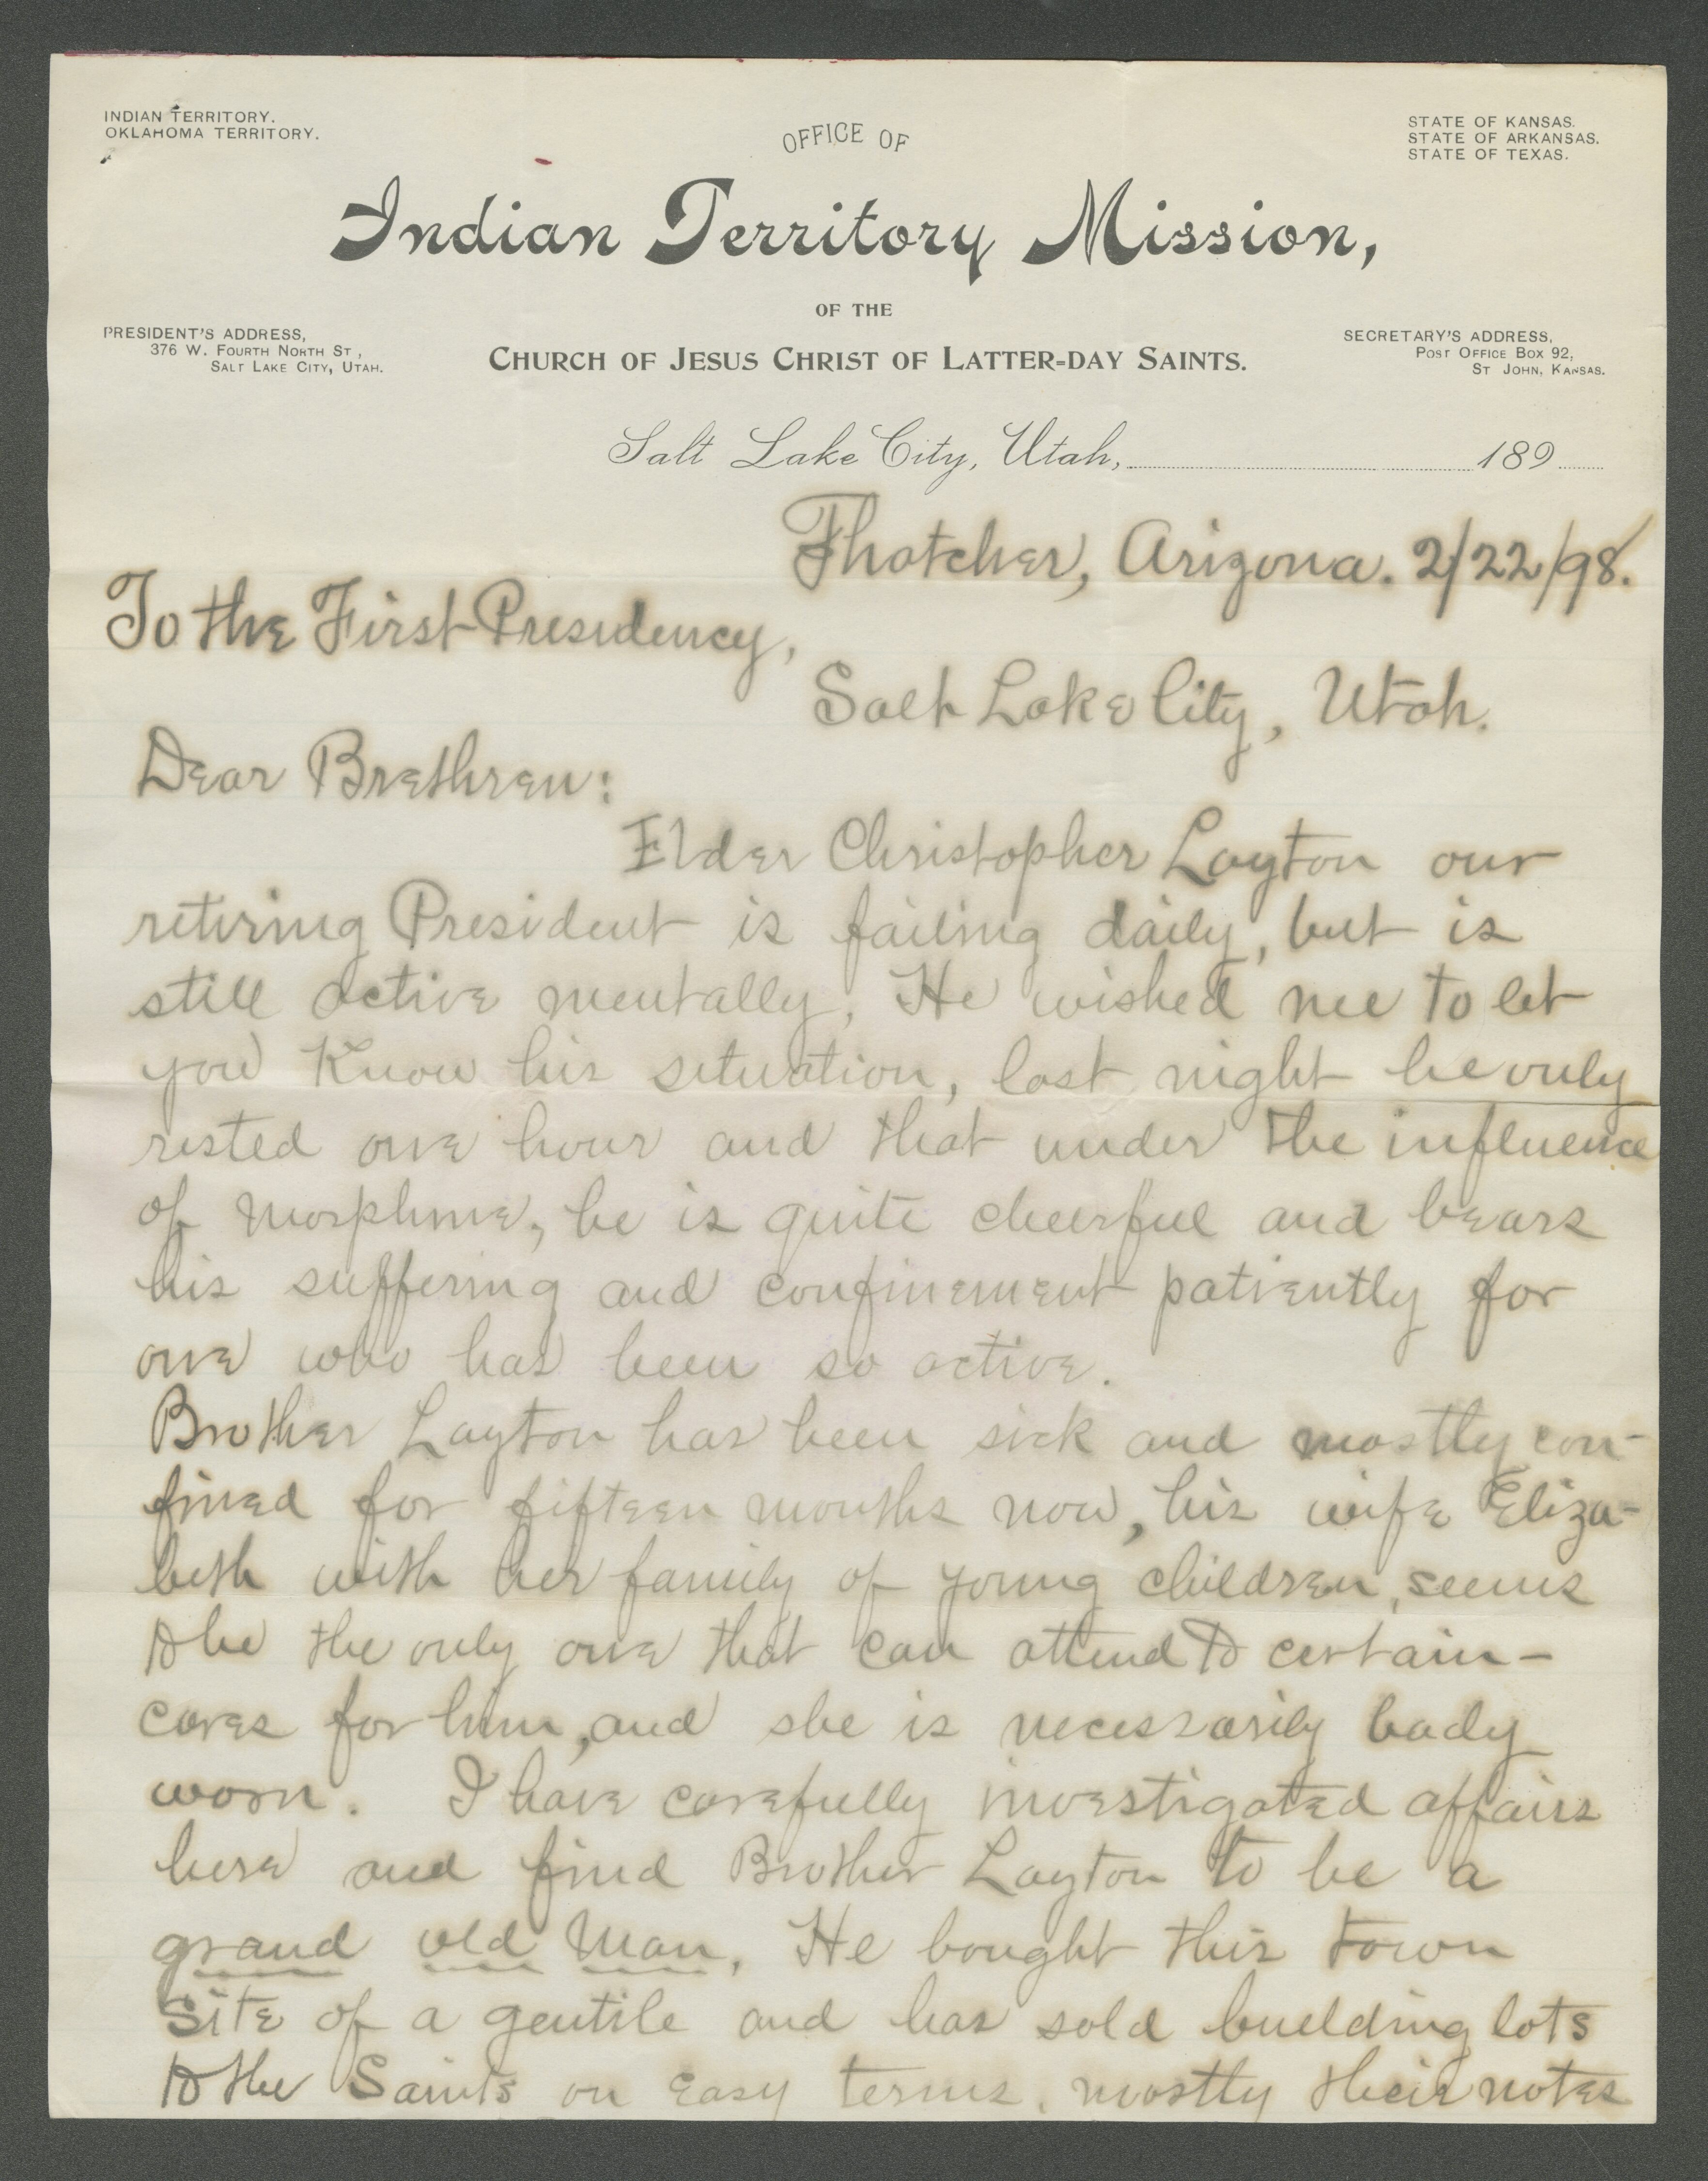 INDIAN TERRITORY.
OKLAHOMA TERRITORY.
OFFICE OF
STATE OF KANSAS.
STATE OF ARKANSAS.
STATE OF TEXAS.
Indian Territory Mission,
OF THE
CHURCH OF JESUS CHRIST OF LATTER=DAY SAINTS.
PRESIDENT'S ADDRESS,
376 W. FOURTH NORTH ST,
SALT LAKE CITY, UTAH.
SECRETARY'S ADDRESS,
POST OFFICE BOX 92,
ST JOHN, KANSAS.
Salt Lake City, Utah, 189
Thatcher, Arizona. 2/22/98.
To the First Presidency,
Salt Lake City, Utah.
Dear Brethren:
Elder Christopher Layton our
retiring President is failing daily, but is
still active mentally, He wished me to let
you Know his situation, last night he only
rested one hour and that under the influence
of morphine, he is quite cheerful and bears
his suffering and confinement patiently for
one who has been so active.
Brother Layton has been sick and mostly con-
fined for fifteen months now, his wife Eliza-
beth with her family of young children, seems
to be the only one that can attend to certain-
cares for him, and she is necessarily bady
worn. I have carefully investigated affairs
here and find Brother Layton to be a
grand old Man. He bought this town
site of a gentile and has sold buelding lots
to the Saints on easy terms, mostly their notes